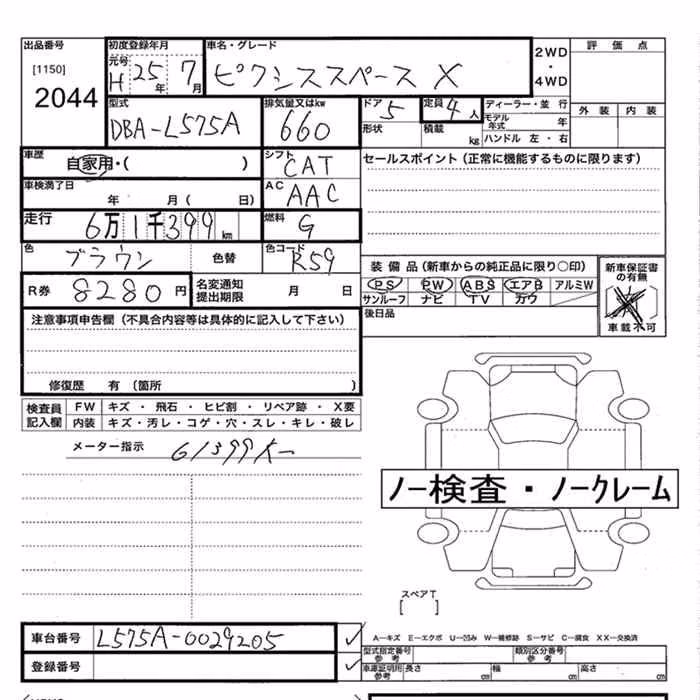 出品番号 初度登録年月 車名・グレード 2WD・4WD 評価点
[1150] 元号 H 25年 7月 ピクシススペース X
2044 型式 排気量又はkw ドア 5 定員 4人 ディーラー・並行 外装 内装
DBA-L575A 660 形状 積載 kg モデル年式 年
ハンドル 左・右
車歴 自家用・( ) シフト CAT セールスポイント(正常に機能するものに限ります)
車検満了日 年 月( 日) AC AAC
走行 6万1千399km 燃料 G
色 ブラウン 色替 色コード R59 装備品(新車からの純正品に限り○印) 新車保証書の有無
R券 8280円 名変通知提出期限 月 日 PS PW ABS エアB アルミW
サンルーフ ナビ TV カワ 車載不可
注意事項申告欄(不具合内容等は具体的に記入して下さい) 後日品
修復歴 有(箇所 )
検査員記入欄 FW キズ・飛石・ヒビ割・リペア跡・X要
内装 キズ・汚レ・コゲ・穴・スレ・キレ・破レ
メーター指示 61399K
ノー検査・ノークレーム
スペアT
[ ]
車台番号 L575A-0029205 A―キズ E―エクボ U―凹み W―補修跡 S―サビ C―腐食 XX―交換済
登録番号 型式指定番号参考 類別区分番号参考
車庫証明用参考 長さ cm 幅 cm 高さ cm